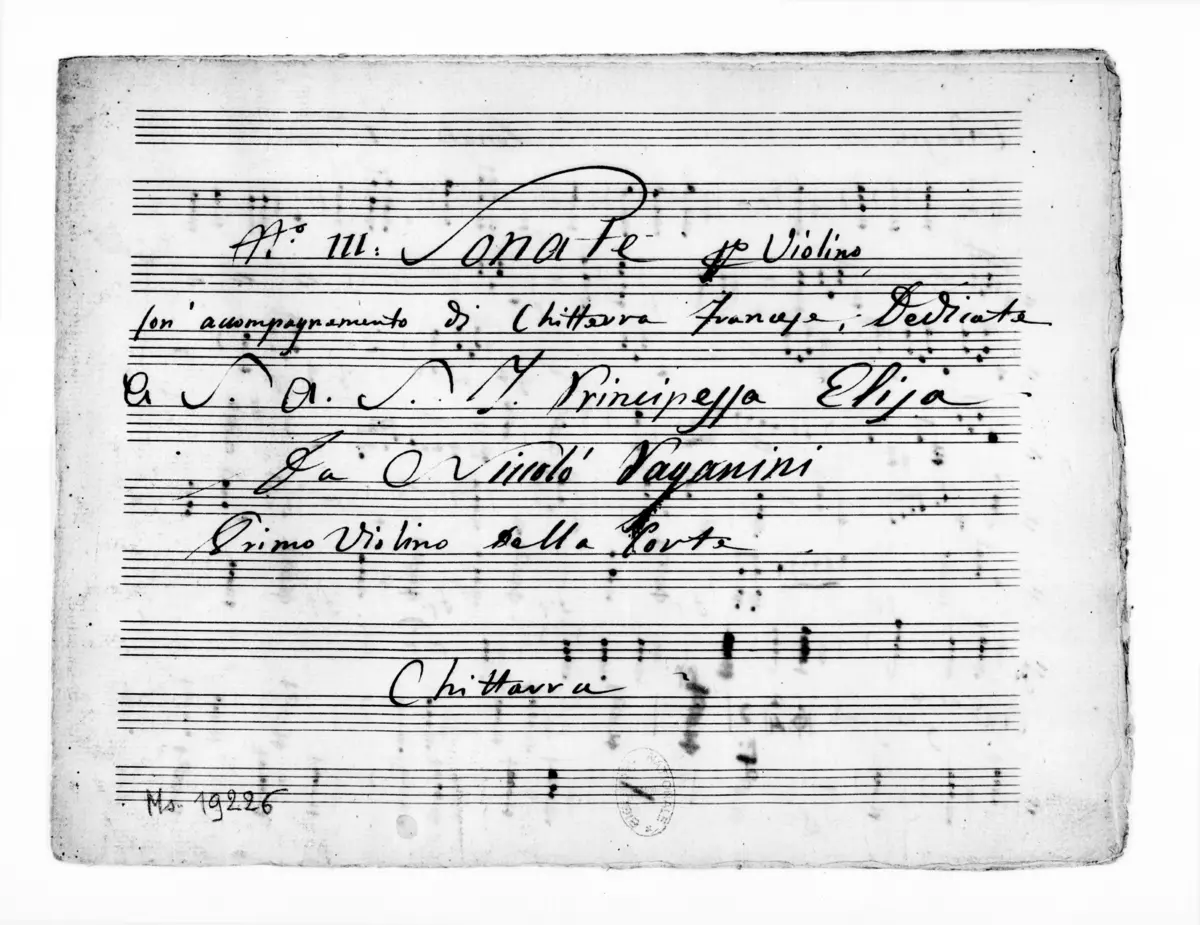 N.º III: Sonate pp Violino
Con accompagnamento di Chitterra Francese, Dedicate
a S. A. S. I. Principessa Elisa
Da Niccoló Paganini
Primo Violino Della Corte
Chittarra
Ms. 19226